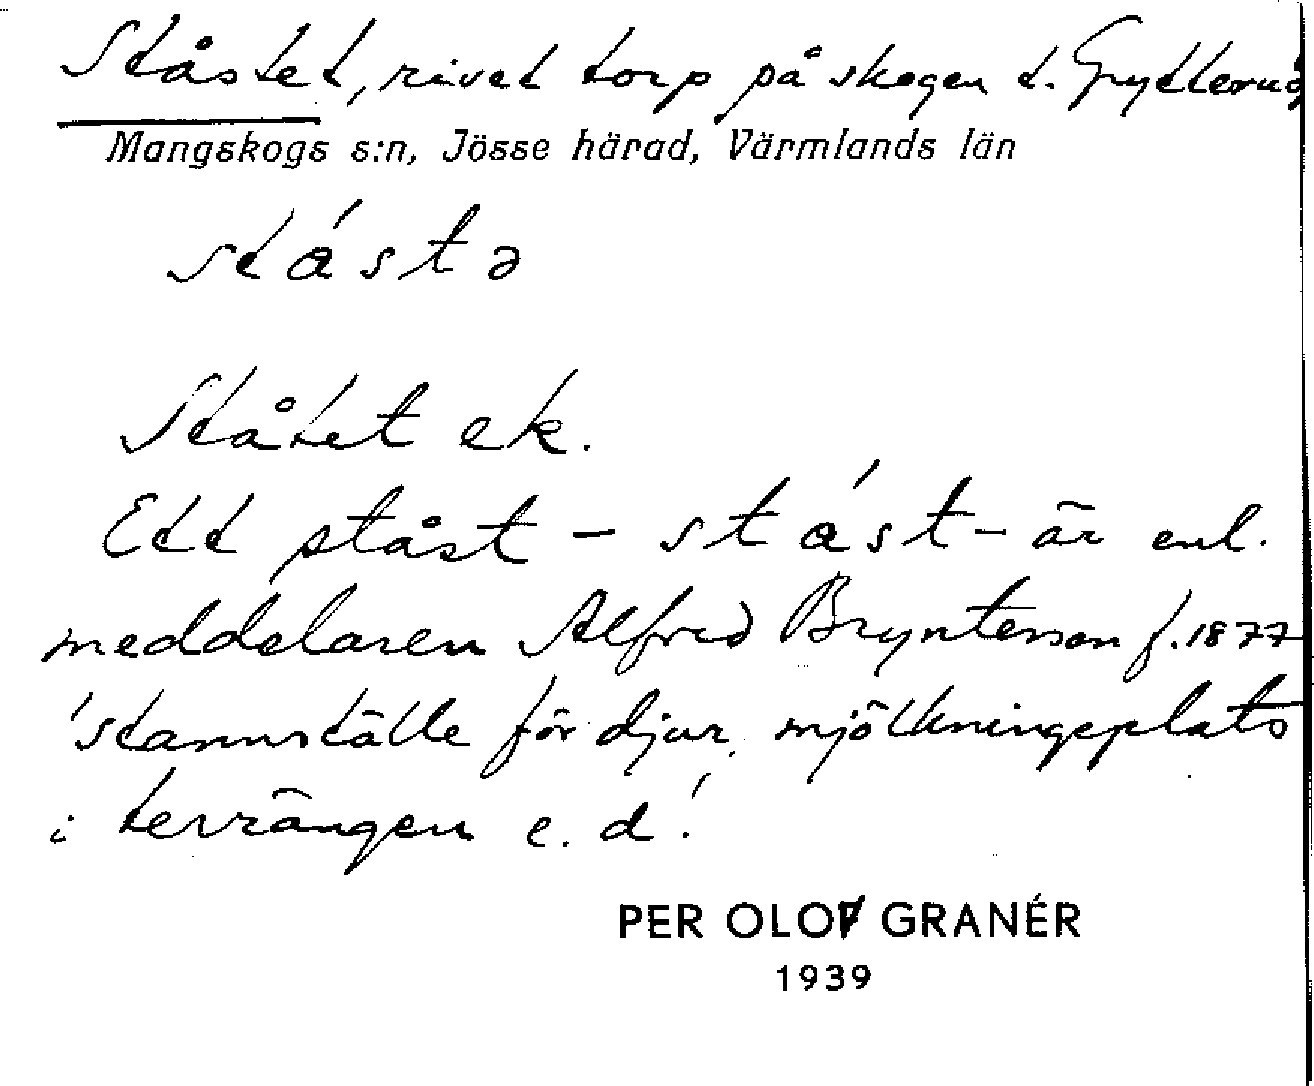 Ståstet, rivet torp på skogen t. Grytterud
Mangskogs s:n, Jösse härad, Värmlands län
stá̊stə
Ståtet ek.
Ett ståst – stá̊st – är enl.
meddelaren Alfred Bryntesson f. 1877
'stannställe för djur, mjölkningsplats
i terrängen e. d.'
PER OLOF GRANÉR
1939